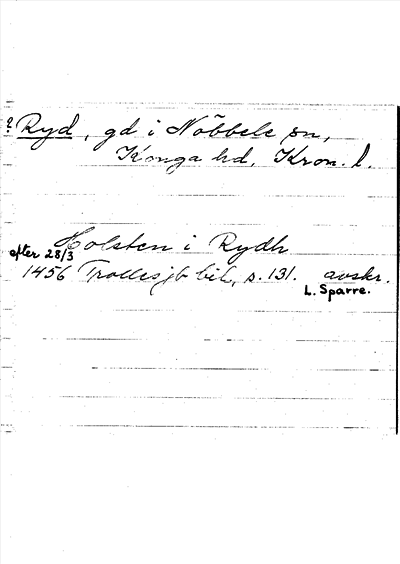 ? Ryd, gd i Nöbbele sn,
Konga hd, Kron. l.
Holsten i Rydh
efter 28/3
1456 Trolles jb bil, s. 131. avskr.
L. Sparre.